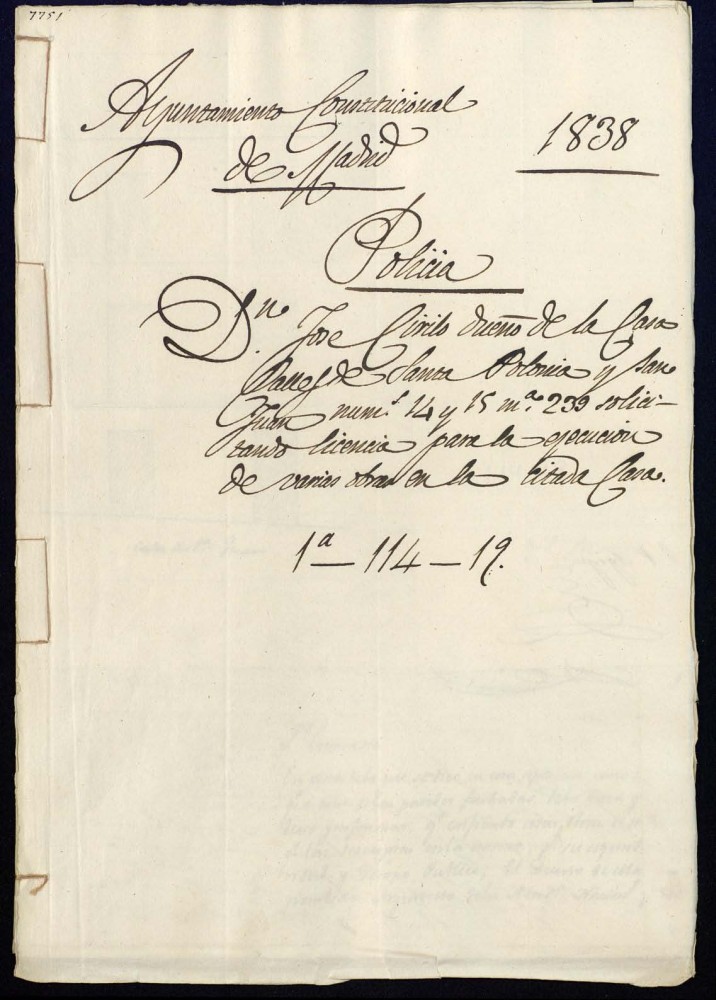 7751
Ayuntamiento Constitucional
de Madrid
1838
Policia
D.n Jose Cirilo dueño de la Casa
Calle de Santa Polonia y San
Juan num.s 14 y 15 m.a 239 solici-
tando licencia para la ejecucion
de varias obras en la citada Casa.
1a - 114 - 19.